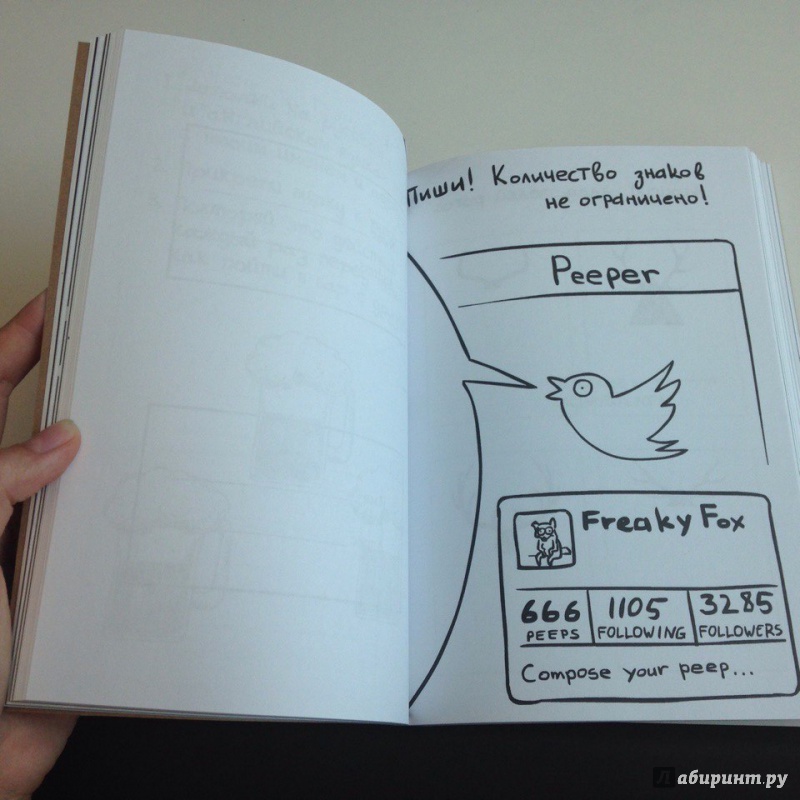 Пиши! Количество знаков
не ограничено!
Peeper
Freaky Fox
666 1105 3285
PEEPS FOLLOWING FOLLOWERS
Compose your peep...
Лабиринт.ру